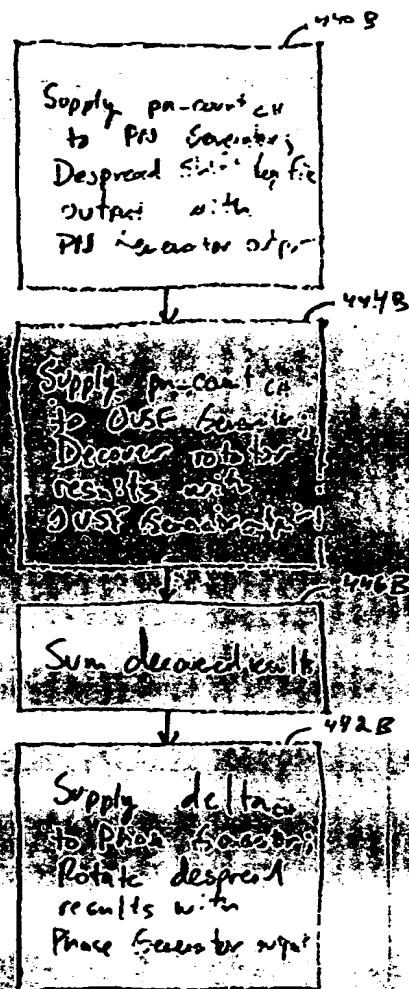 440B
Supply pn-count CH
to PN Generator;
Despread
output with
PN Generator output
444B
Supply pn-count CH
to OVSF Generator;
Decover rotator
results with
OVSF Generator output
446B
Sum decovered results
442B
Supply delta CH
to Phase Generator;
Rotate despread
results with
Phase Generator output